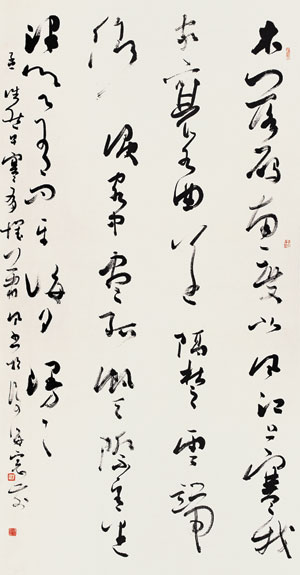 木落雁南度北风江上寒我
家襄水曲遥隔楚雲端
鄉淚客中尽孤帆天際看迷
津欲有问平海夕漫々
孟浩然早寒有懷